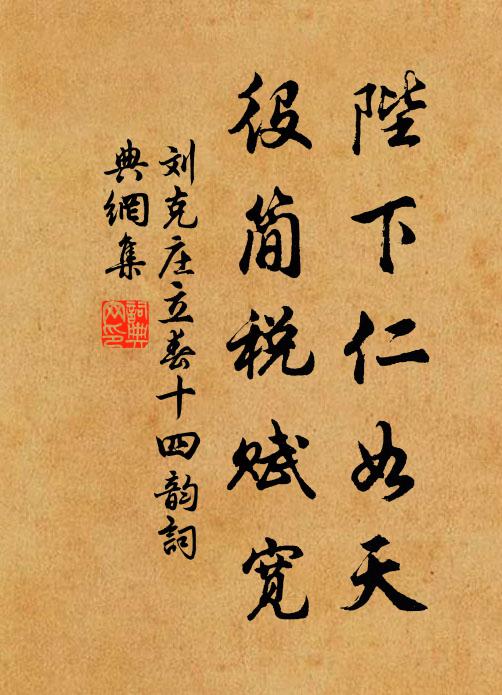 陛下仁如天
役简税赋宽
刘克庄立春十四韵詞
典網集
詞典
网印